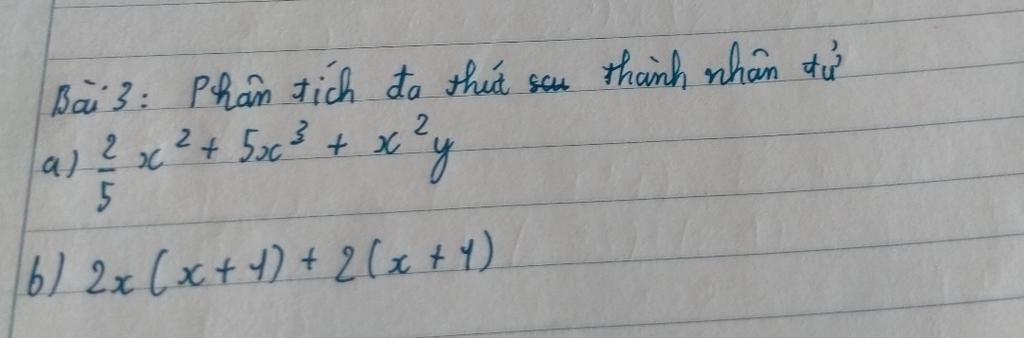 Bài 3: Phân tích đa thứt sau thành nhân tử
a) 2/5 x² + 5x³ + x²y
b) 2x(x+1) + 2(x+1)